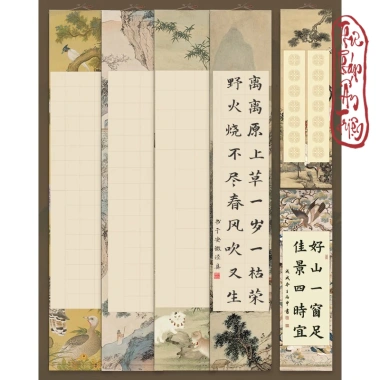 离离原上草一岁一枯荣
野火烧不尽春风吹又生
好山一窗足
佳景四時宜